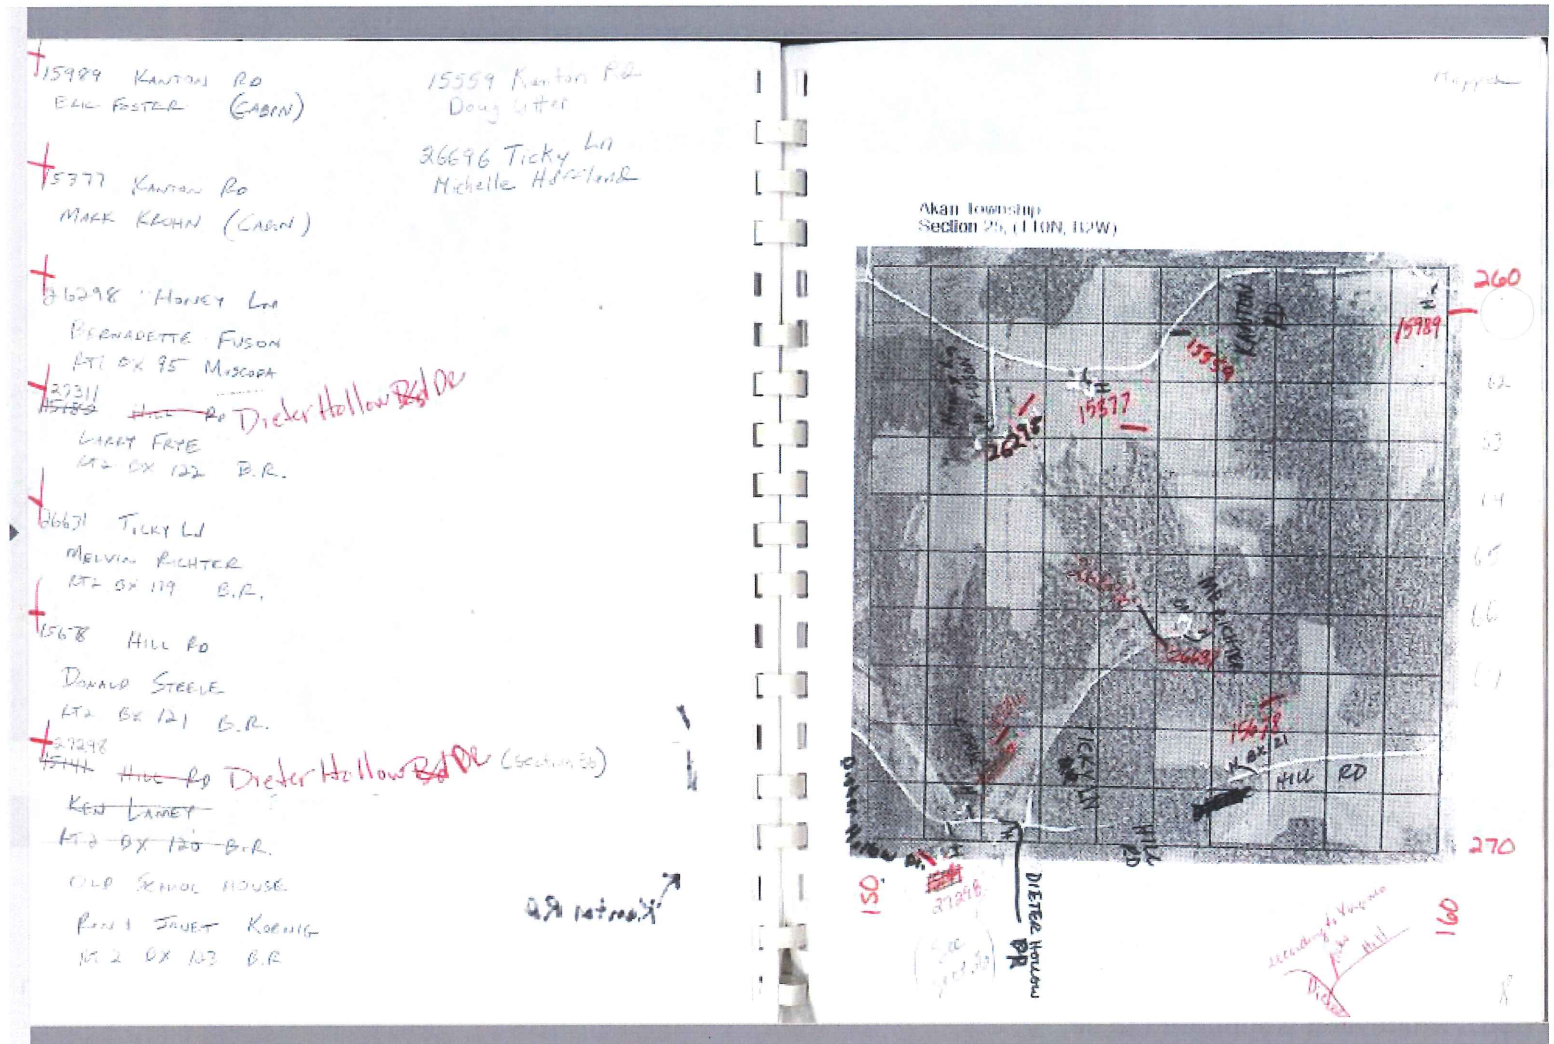 15989 KANTON RD
ERIC FOSTER (CABIN)
15377 KANTON RD
MARK KROHN (CABIN)
26298 HONEY LN
BERNADETTE FUSON
RT1 BX 95 MUSCODA
27311
15189 HILL RD Dieter Hollow Rd DR
LARRY FRYE
RT2 BX 122 B.R.
26631 TICKY LN
MELVIN RICHTER
RT2 BX 119 B.R.
15678 HILL RD
DONALD STEELE
RT2 BX 121 B.R.
27298
15141 HILL RD Dieter Hollow Rd DR (Section 36)
KEN LANEY
RT2 BX 120 B.R.
OLD SCHOOL HOUSE
RON & JANET KOENIG
RT 2 BX 123 B.R.
15559 Kanton RD
Doug Utter
26696 Ticky Ln
Michelle
Kanton Rd
Akan Township
Section 25, (T10N, R2W)
260
KANTON
RD
H
15989
15559
62
H
15377
26298
63
64
65
66
MR RICHTER
26631
67
15678
BX 121
HILL RD
TICKY LN
HILL
RD
270
150
27298
(See
DIETER HOLLOW
DR
160
according to Virginia
Hill
Dieter
8